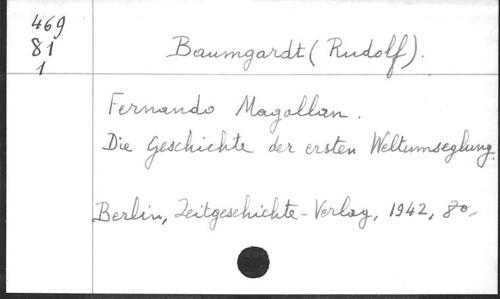 469
81
1
Baumgardt (Rudolf).
Fernando Magollan.
Die Geschichte der ersten Weltumseglung.
Berlin, Zeitgeschichte-Verlag, 1942, 8o,